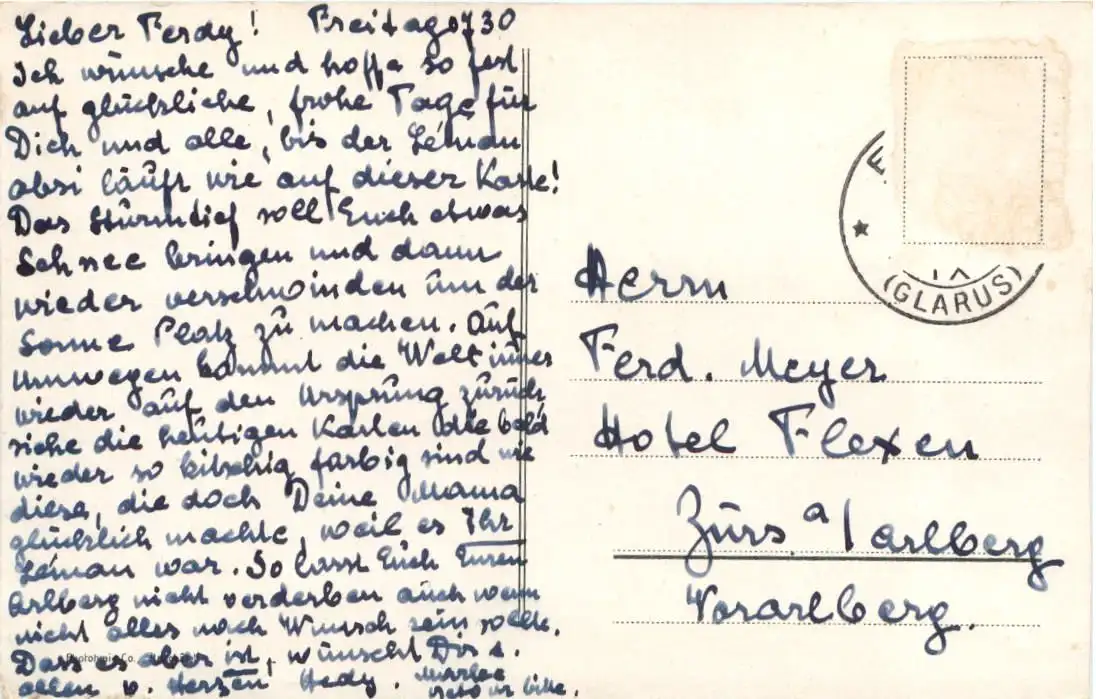 Lieber Ferdy! Freitag 730
Ich wünsche und hoffe so fest
auf glückliche, frohe Tage für
Dich und alle, bis der Léman
absi läuft wie auf dieser Karte!
Das Sturmtief soll Euch etwas
Schnee bringen und dann
wieder verschwinden um der
Sonne Platz zu machen. Auf
Umwegen kommt die Welt immer
wieder auf den Ursprung zurück,
siehe die heutigen Karten die bald
wieder so kitschig farbig sind wie
diese, die doch Deine Mama
glücklich machte, weil es Ihr
Léman war. So lasst Euch Euren
Arlberg nicht verderben auch wenn
nicht alles nach Wunsch sein sollte.
Dass es aber ist, wünscht Dir &
allen v. Herzen Hedy.
bitte.
F
(GLARUS)
Herrn
Ferd. Meyer
Hotel Flexen
Zürs a/arlberg
Vorarlberg.